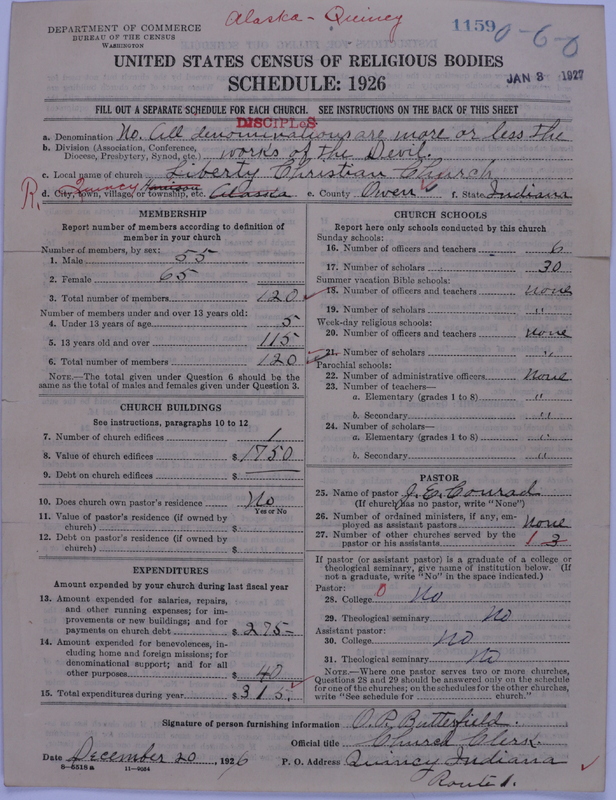 Alaska - Quincy
1159
0-6-0
DEPARTMENT OF COMMERCE
BUREAU OF THE CENSUS
WASHINGTON
UNITED STATES CENSUS OF RELIGIOUS BODIES
SCHEDULE: 1926
JAN 3 1927
FILL OUT A SEPARATE SCHEDULE FOR EACH CHURCH. SEE INSTRUCTIONS ON THE BACK OF THIS SHEET
DISCIPLES
a. Denomination No. All denominations are more or less the
b. Division (Association, Conference, Diocese, Presbytery, Synod, etc.) works of the Devil.
c. Local name of church Liberty Christian Church
R. d. City, town, village, or township, etc. Quincy Alaska e. County Owen f. State Indiana
MEMBERSHIP
Report number of members according to definition of
member in your church
Number of members, by sex:
1. Male 55
2. Female 65
3. Total number of members 120
Number of members under and over 13 years old:
4. Under 13 years of age 5
5. 13 years old and over 115
6. Total number of members 120
NOTE.—The total given under Question 6 should be the
same as the total of males and females given under Question 3.
CHURCH BUILDINGS
See instructions, paragraphs 10 to 12
7. Number of church edifices 1
8. Value of church edifices $ 1750
9. Debt on church edifices $
10. Does church own pastor's residence No
Yes or No
11. Value of pastor's residence (if owned by
church) $
12. Debt on pastor's residence (if owned by
church) $
EXPENDITURES
Amount expended by your church during last fiscal year
13. Amount expended for salaries, repairs,
and other running expenses; for im-
provements or new buildings; and for
payments on church debt $ 275-
14. Amount expended for benevolences, in-
cluding home and foreign missions; for
denominational support; and for all
other purposes $ 40
15. Total expenditures during year $ 315.
CHURCH SCHOOLS
Report here only schools conducted by this church
Sunday schools:
16. Number of officers and teachers 6
17. Number of scholars 30
Summer vacation Bible schools:
18. Number of officers and teachers none
19. Number of scholars "
Week-day religious schools:
20. Number of officers and teachers none
21. Number of scholars "
Parochial schools:
22. Number of administrative officers None
23. Number of teachers—
a. Elementary (grades 1 to 8) "
b. Secondary "
24. Number of scholars—
a. Elementary (grades 1 to 8) "
b. Secondary "
PASTOR
25. Name of pastor J. E. Conrad
(If church has no pastor, write "None")
26. Number of ordained ministers, if any, em-
ployed as assistant pastors None
27. Number of other churches served by the
pastor or his assistants 1 3
If pastor (or assistant pastor) is a graduate of a college or
theological seminary, give name of institution below. (If
not a graduate, write "No" in the space indicated.)
Pastor:
28. College 0 No
29. Theological seminary No
Assistant pastor:
30. College No
31. Theological seminary No
NOTE.—Where one pastor serves two or more churches,
Questions 28 and 29 should be answered only on the schedule
for one of the churches; on the schedules for the other churches,
write "See schedule for church."
Signature of person furnishing information O. P. Butterfield.
Official title Church Clerk.
Date December 20, 1926 P. O. Address Quincy Indiana
8-5518 a 11-9084
Route 1.